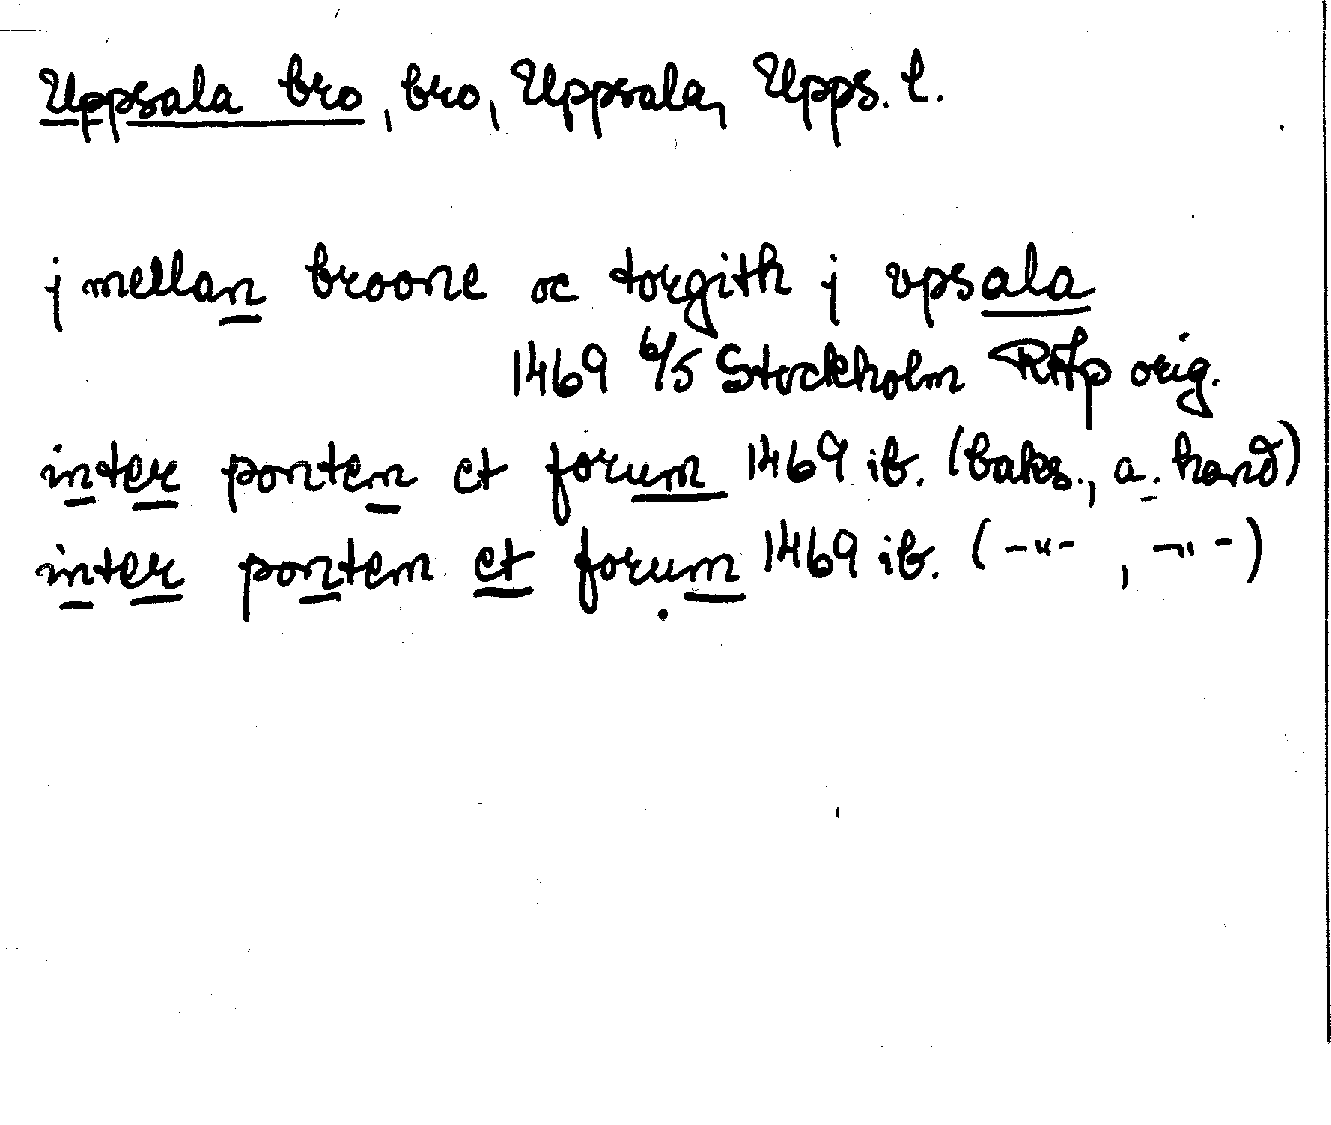 Uppsala bro, bro, Uppsala, Upps. l.
j mellan broone oc torgith j vpsala
1469 6/5 Stockholm RAp orig.
inter pontem et forum 1469 ib. (baks., a. hand)
inter pontem et forum 1469 ib. (-"- , -"-)